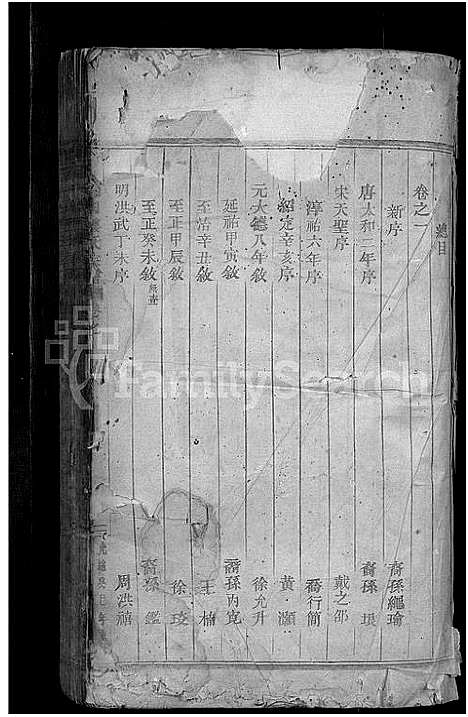 總目
卷之一
新序 裔孫繩瑜
唐太和二年序 裔孫 垠
宋天聖序 戴之邵
淳祐六年序 喬行簡
紹定辛亥序 黃灝
元大德八年敘 徐允升
延祐甲寅敘 裔孫丙寬
至治辛丑敘 王楠
至正甲辰敘 徐
至正癸未敘 裔孫 鑑
明洪武丁未序 周洪禧
FamilySearch